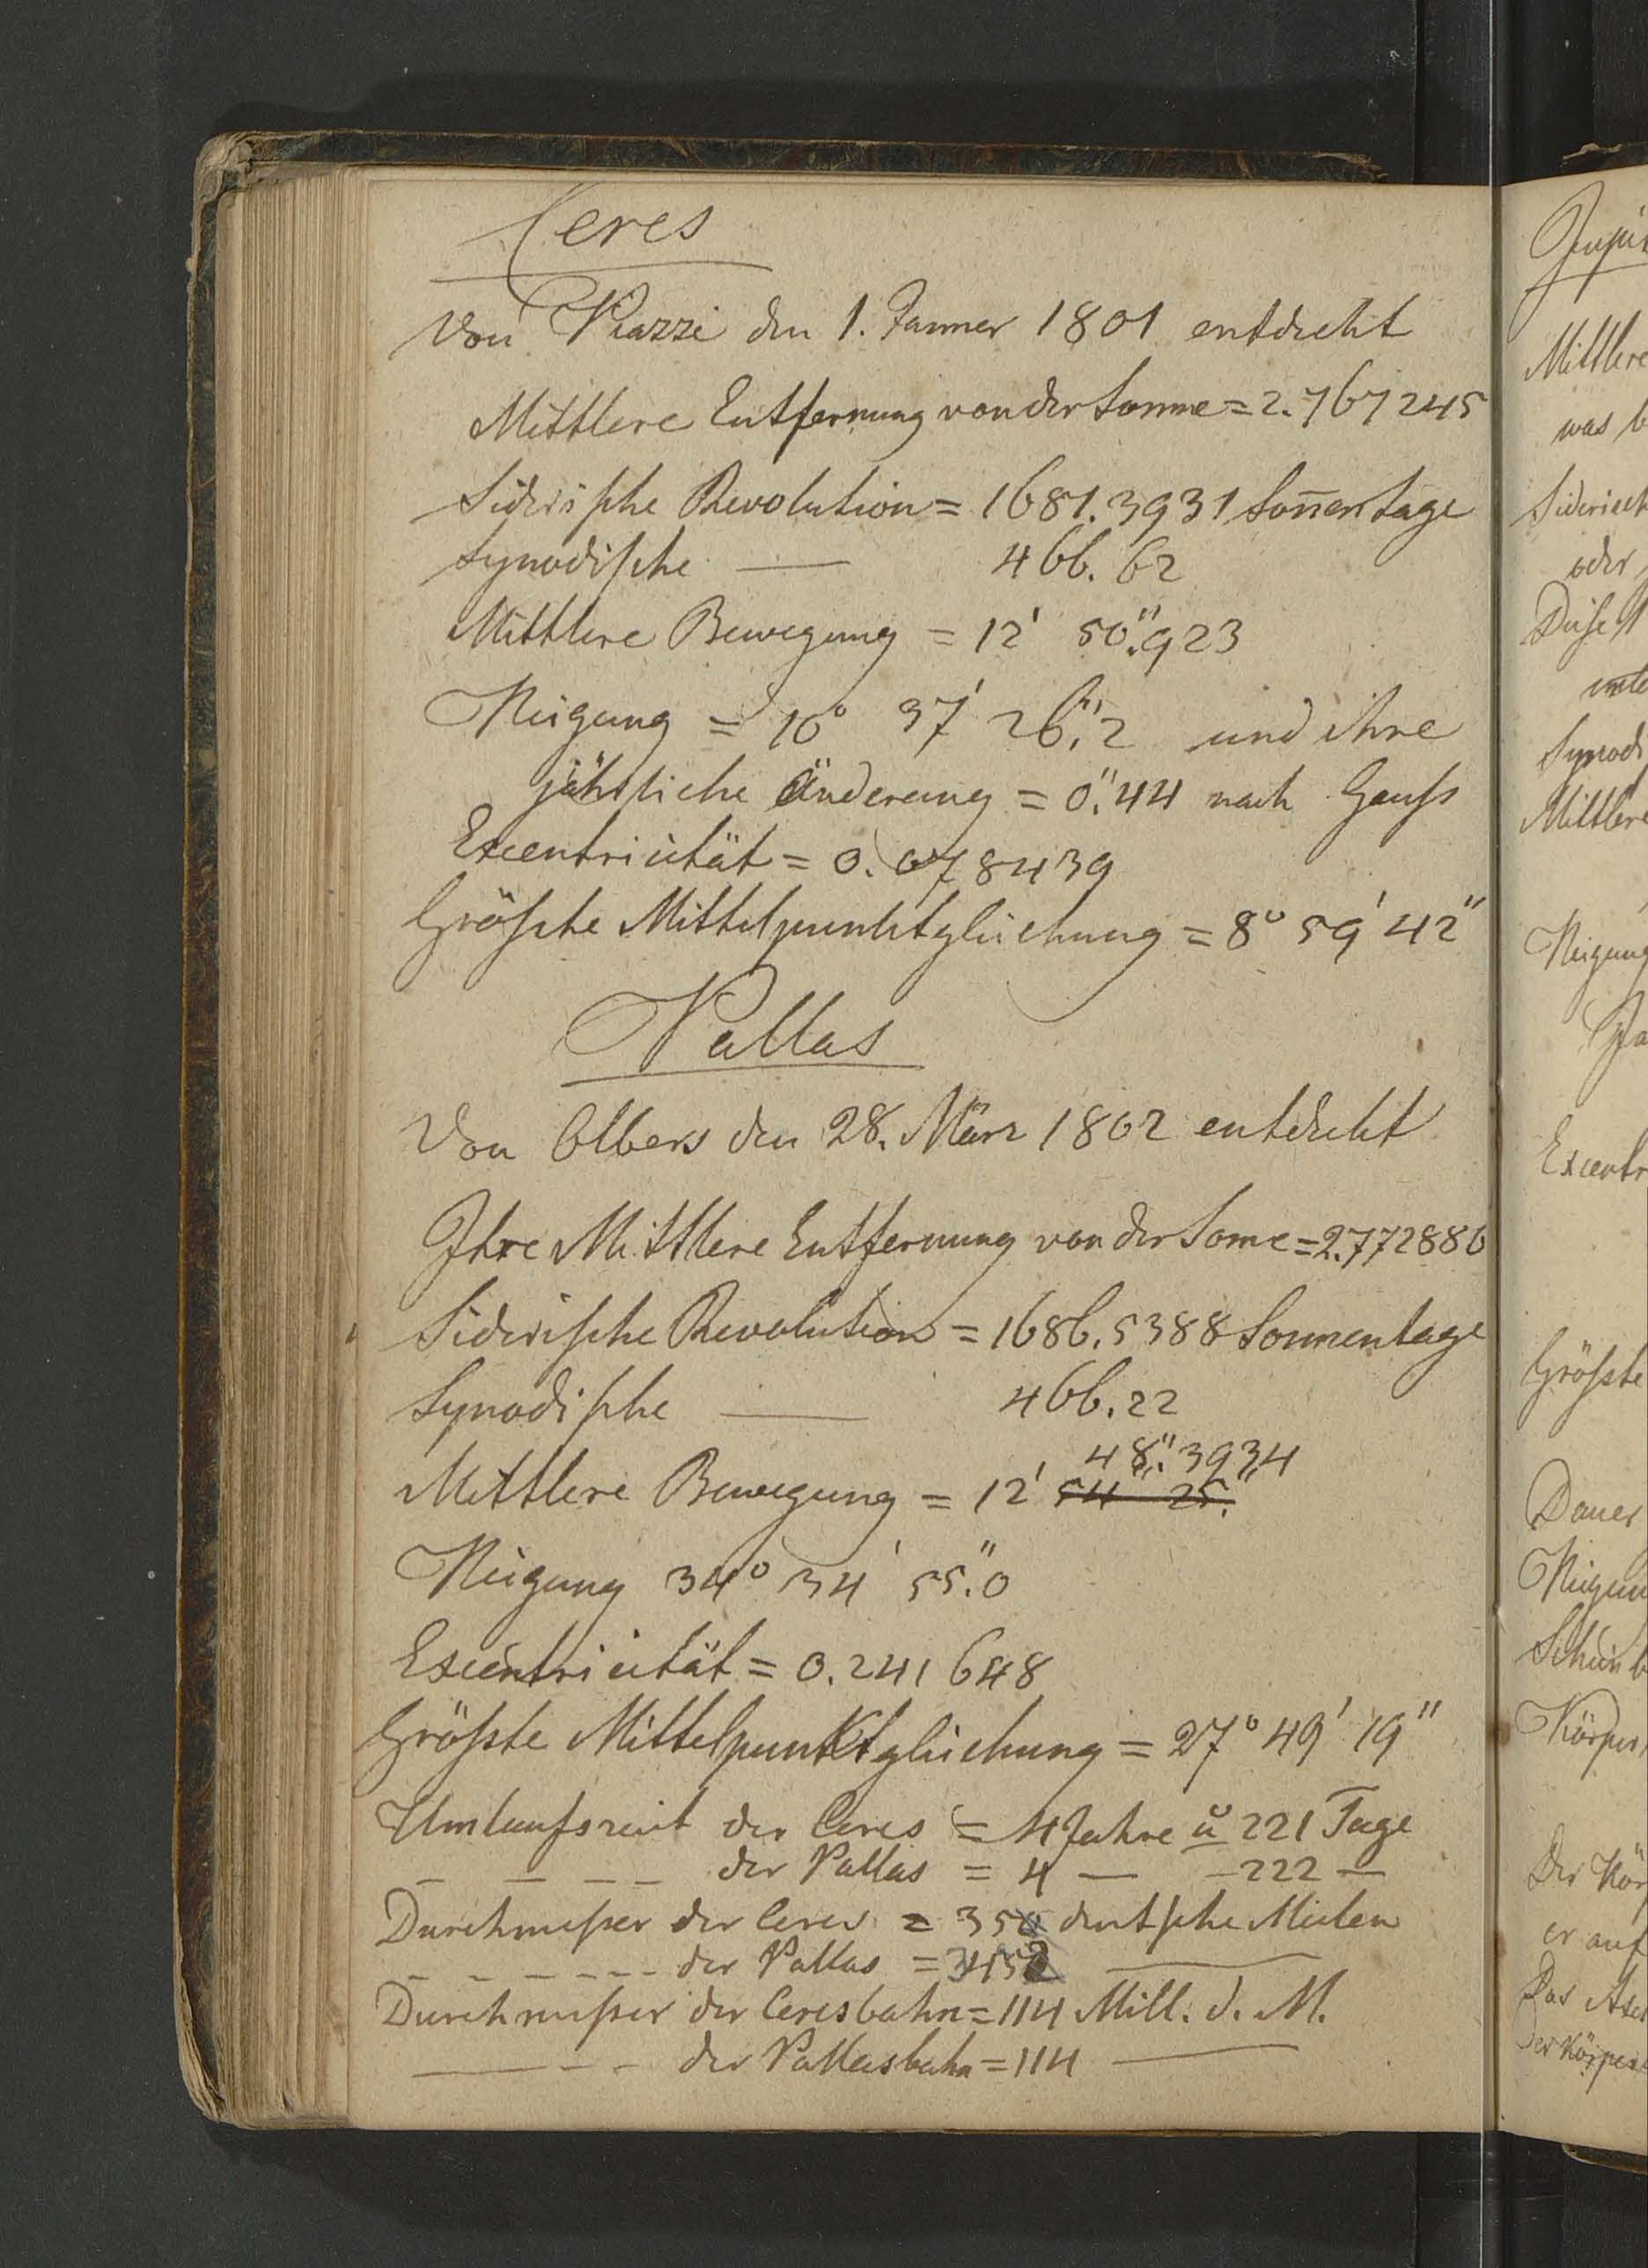 Ceres
Von Piazzi den 1. Januer 1801 entdeckt
Mittlere Entfernung von der Sonne = 2.767245
Siderische Revolution = 1681.3931 Son̄entage
Synodische — 466.62
Mittlere Bewegung = 12' 50".923
Neigung = 10° 37' 26".2 und ihre
jährliche Änderung = 0".44 nach Gauſs
Excentricität = 0.078439
Größte Mittelpunktgleichung = 8° 59' 42"
Pallas
Von Olbers den 28. März 1802 entdeckt
Ihre Mittlere Entfernung von der Sonne = 2.772886
Siderische Revolution = 1686.5388 Sonnentage
Synodische — 466.22
48".3934
Mittlere Bewegung = 12' 54" 25."
Neigung 34° 34' 55".0
Excentricität = 0.241648
Größte Mittelpunktgleichung = 27° 49' 19"
Umlaufszeit der Ceres = 4 Jahre u 221 Tage
— — — — der Pallas = 4 — — 222 —
Durchmeßer der Ceres = 350 deutsche Meilen
— — — — — — der Pallas = —
Durchmeßer der Ceresbahn = 114 Mill. d. M.
— — — der Pallasbahn = 114 —
Mittlere
was
oder
Synodi
Mittlere
Neigung
Excentr
Größte
Dauer
Neigun
Körper
Der Kör
er auf
Der Körper